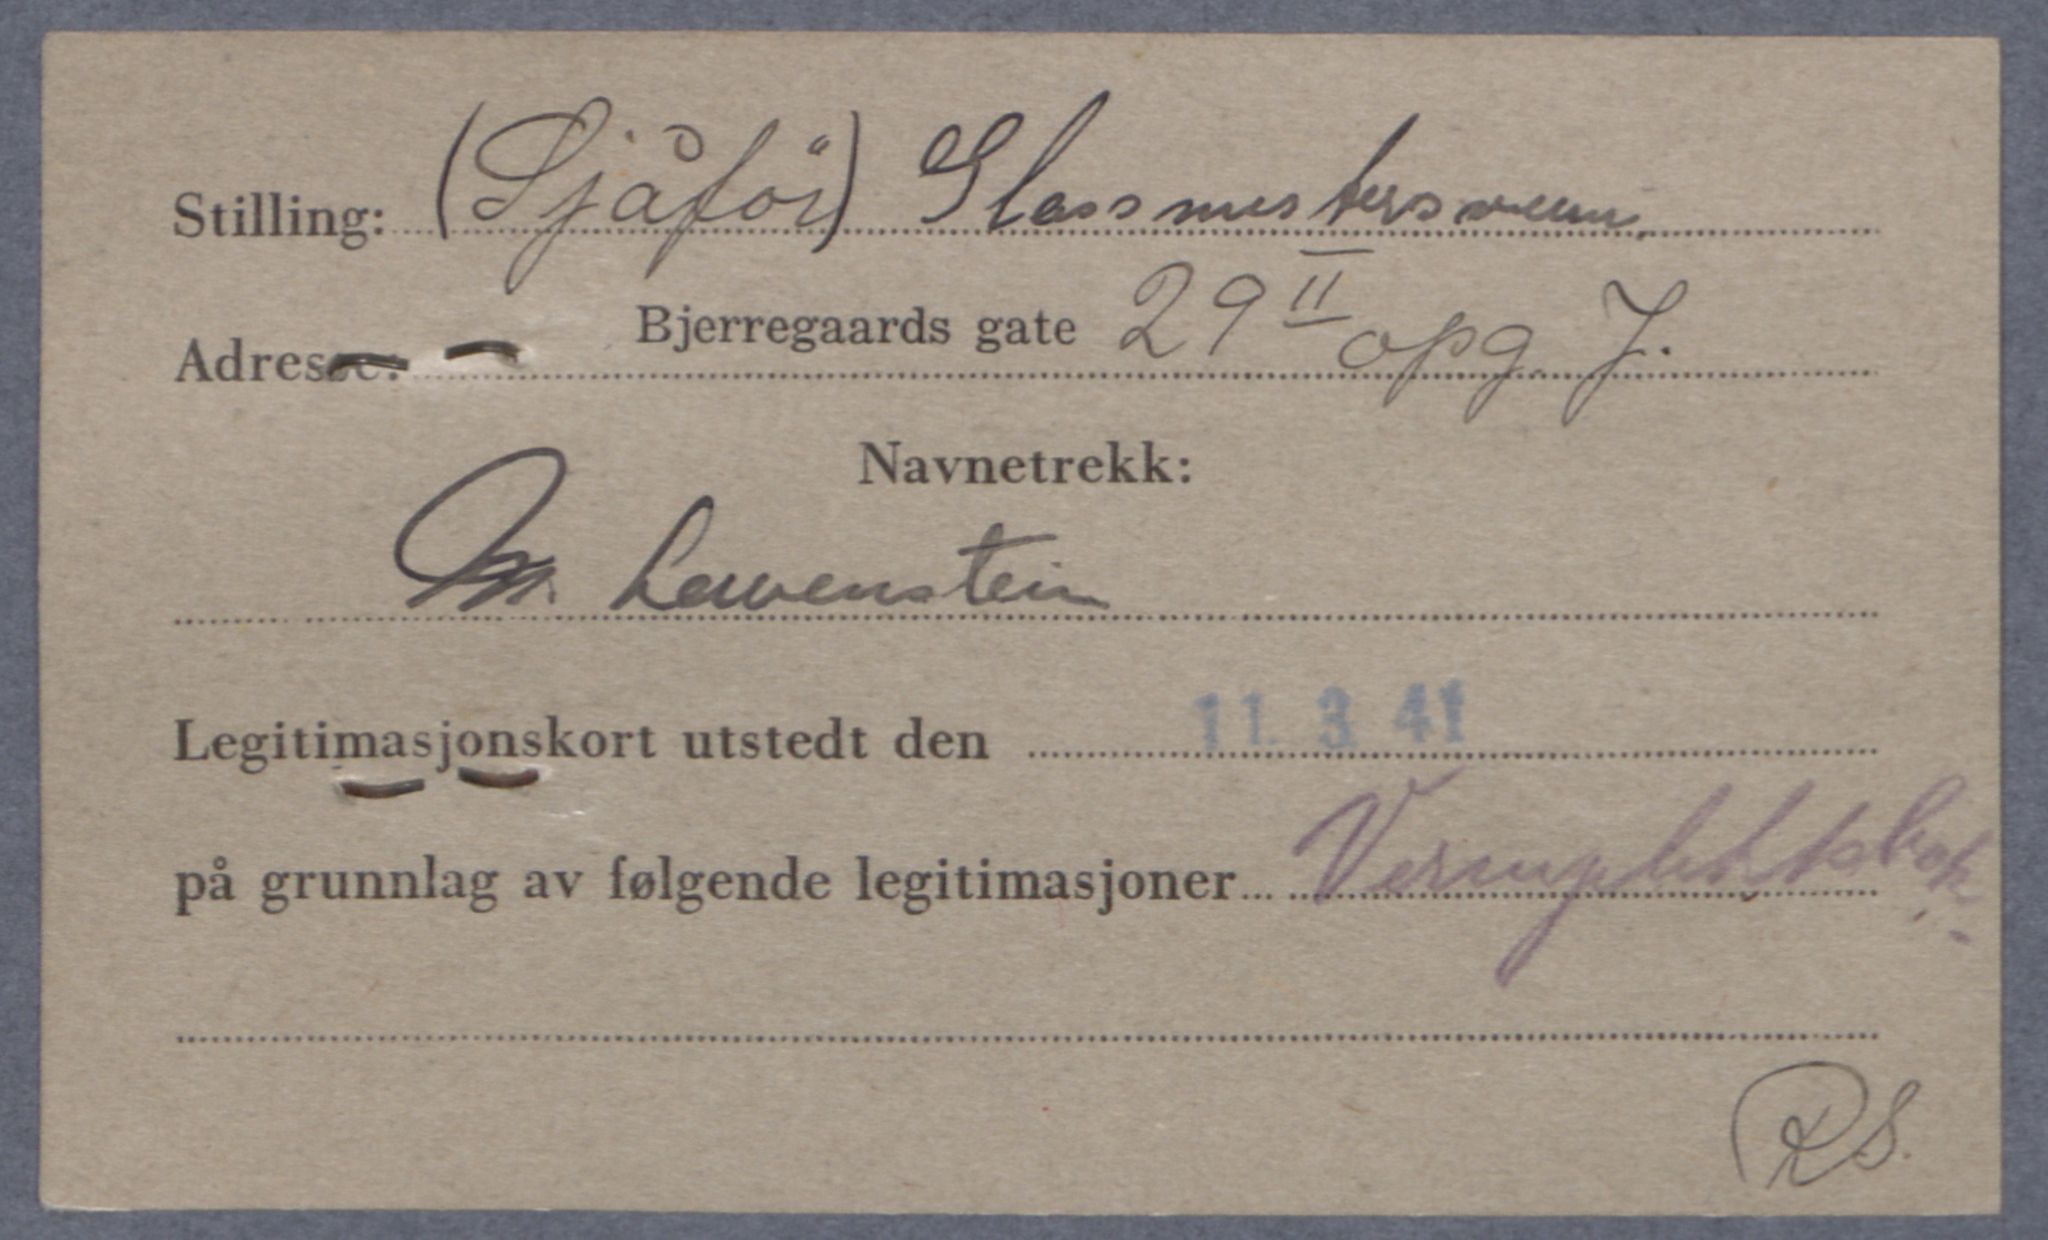 Stilling: (Sjåför) Glassmestersvenn.
Adresse: Bjerregaards gate 29 II opg. J.
Navnetrekk:
M. Lewenstein
Legitimasjonskort utstedt den 11. 3. 41
på grunnlag av følgende legitimasjoner Vernepliktsbok.
RS.